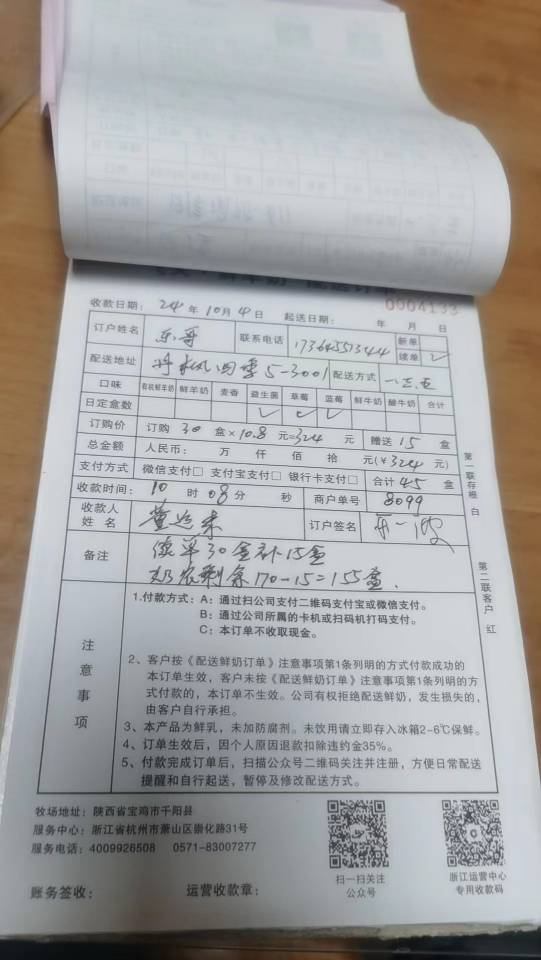 0004133
收款日期： 24 年 10 月 4 日 起送日期： 年 月 日
订户姓名 东哥 联系电话 17364551344 新单
续单 ✓
配送地址 5-3001 配送方式 一三五
口味 有机鲜羊奶 鲜羊奶 麦香 益生菌 草莓 蓝莓 鲜牛奶 酸牛奶 合计
日定盒数 ✓ ✓ ✓
订购价 订购 30 盒×10.8 元=324 元 赠送 15 盒
总金额 人民币： 万 仟 佰 拾 元(¥324元)
支付方式 微信支付□ 支付宝支付□ 银行卡支付□ 合计 45 盒
收款时间： 10 时 08 分 秒 商户单号 8099
收款人姓名 订户签名
备注 续单30盒补15盒
剩余170-15=155盒.
第一联存根 白
第二联客户 红
注意事项
1.付款方式：A：通过扫公司支付二维码支付宝或微信支付。
B：通过公司所属的卡机或扫码机打码支付。
C：本订单不收取现金。
2、客户按《配送鲜奶订单》注意事项第1条列明的方式付款成功的
本订单生效，客户未按《配送鲜奶订单》注意事项第1条列明的方
式付款的，本订单不生效。公司有权拒绝配送鲜奶，发生损失的，
由客户自行承担。
3、本产品为鲜乳，未加防腐剂。未饮用请立即存入冰箱2-6℃保鲜。
4、订单生效后，因个人原因退款扣除违约金35%。
5、付款完成订单后，扫描公众号二维码关注并注册，方便日常配送
提醒和自行起送，暂停及修改配送方式。
牧场地址：陕西省宝鸡市千阳县
服务中心：浙江省杭州市萧山区崇化路31号
服务电话：4009926508 0571-83007277
扫一扫关注
公众号
浙江运营中心
专用收款码
账务签收： 运营收款章：